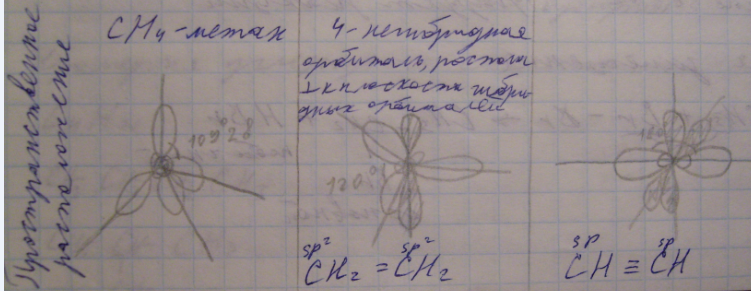 Пространственное
расположение
CH4 - метан
109°28'
4 - негибридная
орбиталь, распола
⊥ к плоскости гибри
дных орбиталей
120°
sp² sp²
CH2 = CH2
180°
sp sp
CH ≡ CH